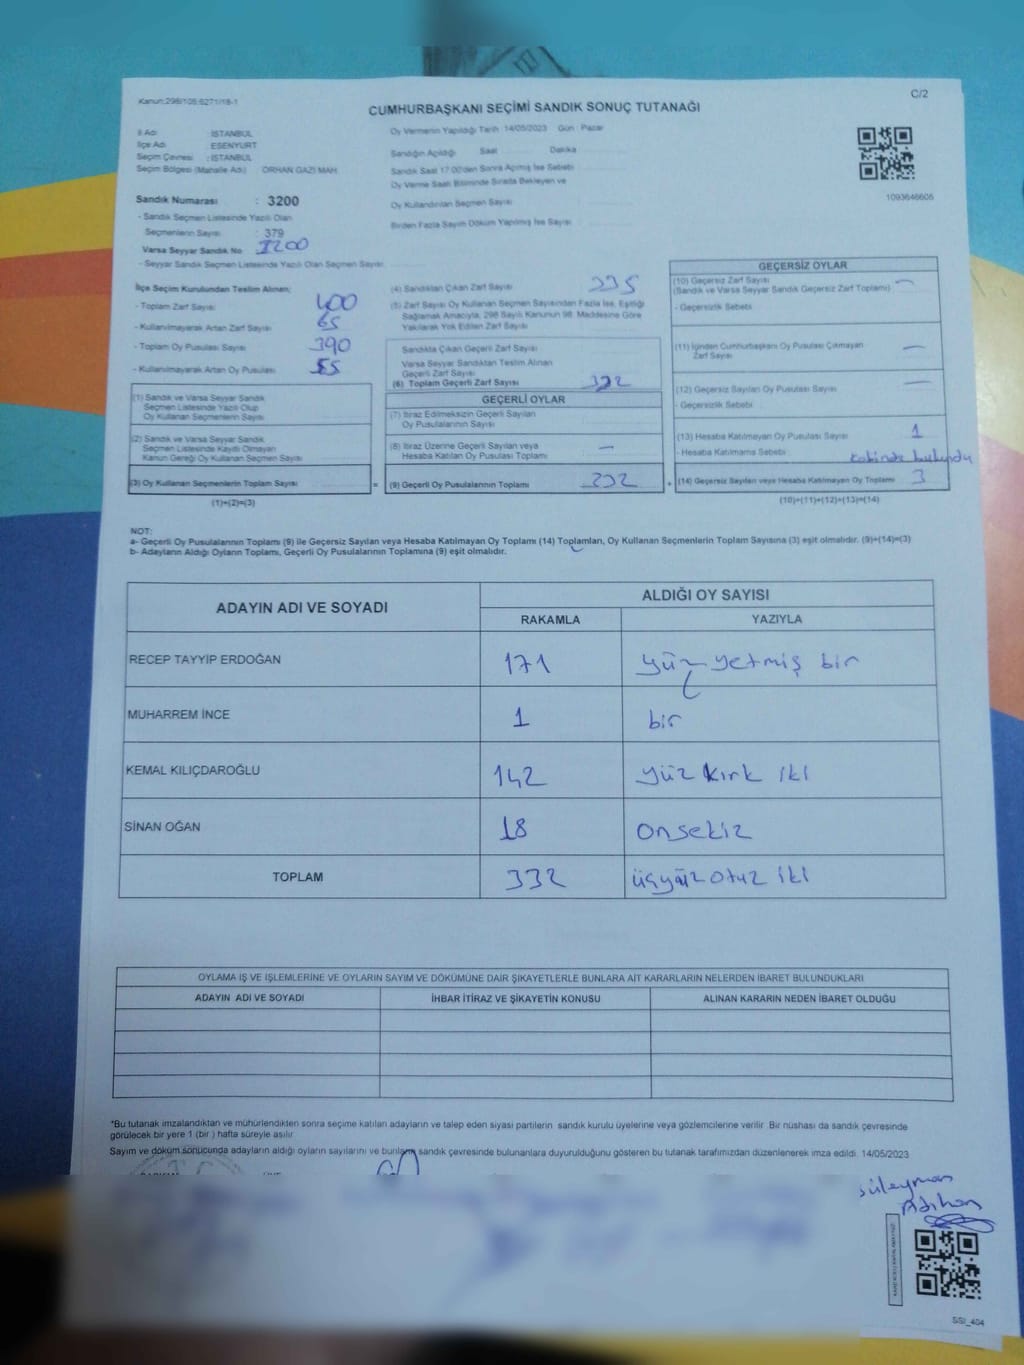 Kanun:298/105;6271/18-1
C/2
CUMHURBAŞKANI SEÇİMİ SANDIK SONUÇ TUTANAĞI
İl Adı : İSTANBUL
İlçe Adı : ESENYURT
Seçim Çevresi : İSTANBUL
Seçim Bölgesi (Mahalle Adı) ORHAN GAZİ MAH.
Oy Vermenin Yapıldığı Tarih :14/05/2023 Gün : Pazar
Sandığın Açıldığı Saat Dakika
Sandık Saat 17:00'den Sonra Açılmış İse Sebebi
Oy Verme Saati Bitiminde Sırada Bekleyen ve
Oy Kullandırılan Seçmen Sayısı
Birden Fazla Sayım Döküm Yapılmış İse Sayısı
1093646606
Sandık Numarası : 3200
- Sandık Seçmen Listesinde Yazılı Olan
Seçmenlerin Sayısı : 379
Varsa Seyyar Sandık No 3200
- Seyyar Sandık Seçmen Listesinde Yazılı Olan Seçmen Sayısı
İlçe Seçim Kurulundan Teslim Alınan;
- Toplam Zarf Sayısı 400
- Kullanılmayarak Artan Zarf Sayısı 65
- Toplam Oy Pusulası Sayısı 390
- Kullanılmayarak Artan Oy Pusulası 55
(1) Sandık ve Varsa Seyyar Sandık
Seçmen Listesinde Yazılı Olup
Oy Kullanan Seçmenlerin Sayısı
(2) Sandık ve Varsa Seyyar Sandık
Seçmen Listesinde Kayıtlı Olmayan
Kanun Gereği Oy Kullanan Seçmen Sayısı
(3) Oy Kullanan Seçmenlerin Toplam Sayısı =
(1)+(2)=(3)
(4) Sandıktan Çıkan Zarf Sayısı 335
(5) Zarf Sayısı Oy Kullanan Seçmen Sayısından Fazla İse, Eşitliği
Sağlamak Amacıyla, 298 Sayılı Kanunun 98. Maddesine Göre
Yakılarak Yok Edilen Zarf Sayısı
Sandıkta Çıkan Geçerli Zarf Sayısı
Varsa Seyyar Sandıktan Teslim Alınan
Geçerli Zarf Sayısı
(6) Toplam Geçerli Zarf Sayısı 332
GEÇERLİ OYLAR
(7) İtiraz Edilmeksizin Geçerli Sayılan
Oy Pusulalarının Sayısı
(8) İtiraz Üzerine Geçerli Sayılan veya
Hesaba Katılan Oy Pusulası Toplamı —
(9) Geçerli Oy Pusulalarının Toplamı 332 +
GEÇERSİZ OYLAR
(10) Geçersiz Zarf Sayısı —
(Sandık ve Varsa Seyyar Sandık Geçersiz Zarf Toplamı)
- Geçersizlik Sebebi
(11) İçinden Cumhurbaşkanı Oy Pusulası Çıkmayan —
Zarf Sayısı
(12) Geçersiz Sayılan Oy Pusulası Sayısı —
- Geçersizlik Sebebi
(13) Hesaba Katılmayan Oy Pusulası Sayısı 1
- Hesaba Katılmama Sebebi kabinde bulundu
(14) Geçersiz Sayılan veya Hesaba Katılmayan Oy Toplamı 3
(10)+(11)+(12)+(13)=(14)
NOT:
a- Geçerli Oy Pusulalarının Toplamı (9) ile Geçersiz Sayılan veya Hesaba Katılmayan Oy Toplamı (14) Toplamları, Oy Kullanan Seçmenlerin Toplam Sayısına (3) eşit olmalıdır. (9)+(14)=(3)
b- Adayların Aldığı Oyların Toplamı, Geçerli Oy Pusulalarının Toplamına (9) eşit olmalıdır.
ADAYIN ADI VE SOYADI
ALDIĞI OY SAYISI
RAKAMLA YAZIYLA
RECEP TAYYİP ERDOĞAN 171 yüz yetmiş bir
MUHARREM İNCE 1 bir
KEMAL KILIÇDAROĞLU 142 yüz kırk iki
SİNAN OĞAN 18 onsekiz
TOPLAM 332 üçyüz otuz iki
OYLAMA İŞ VE İŞLEMLERİNE VE OYLARIN SAYIM VE DÖKÜMÜNE DAİR ŞİKAYETLERLE BUNLARA AİT KARARLARIN NELERDEN İBARET BULUNDUKLARI
ADAYIN ADI VE SOYADI İHBAR İTİRAZ VE ŞİKAYETİN KONUSU ALINAN KARARIN NEDEN İBARET OLDUĞU
*Bu tutanak imzalandıktan ve mühürlendikten sonra seçime katılan adayların ve talep eden siyasi partilerin sandık kurulu üyelerine veya gözlemcilerine verilir. Bir nüshası da sandık çevresinde
görülecek bir yere 1 (bir ) hafta süreyle asılır.
Sayım ve döküm sonucunda adayların aldığı oyların sayılarını ve bunların sandık çevresinde bulunanlara duyurulduğunu gösteren bu tutanak tarafımızdan düzenlenerek imza edildi. 14/05/2023
Süleyman
SSI_404